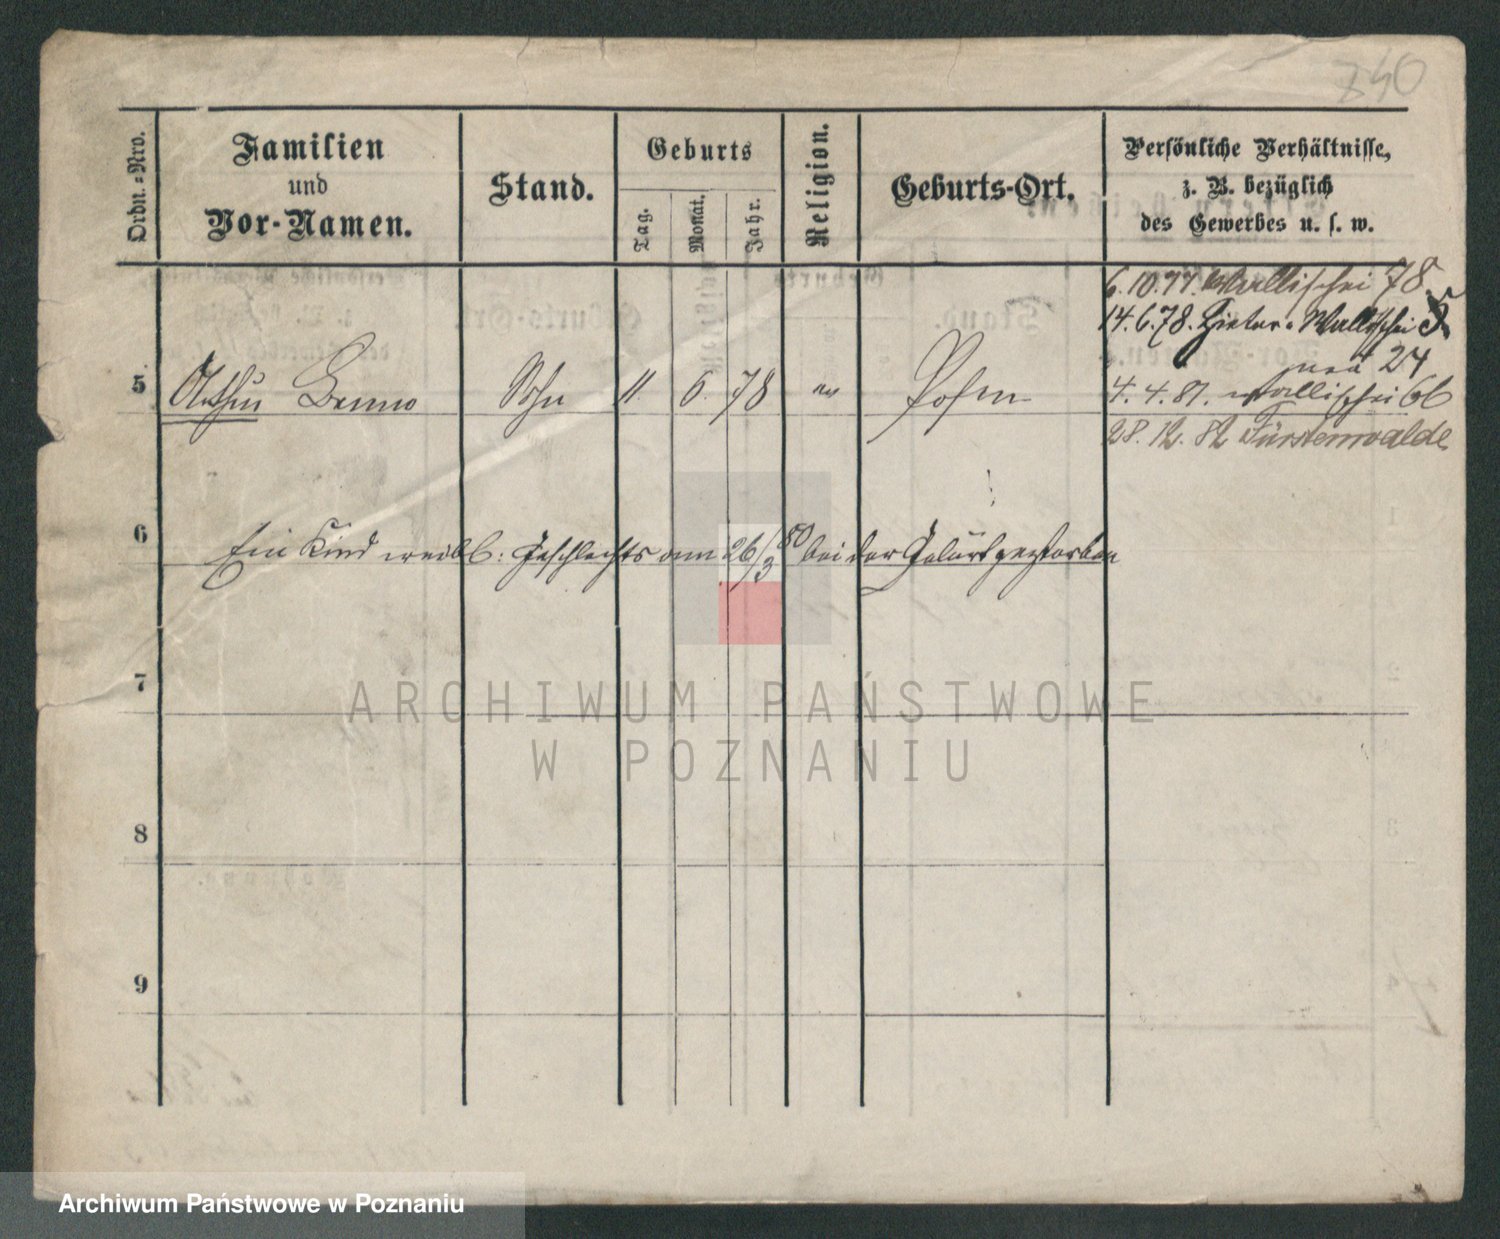 740
Ordn.-Nro.
Familien
und
Vor-Namen.
Stand.
Geburts
Tag.
Monat.
Jahr.
Religion.
Geburts-Ort.
Persönliche Verhältnisse,
z. B. bezüglich
des Gewerbes u. s. w.
6.10.77. Wallischei 78.
14.6.78. Hinter-Wallischei
und 24
5 Arthur Benno Sohn 11. 6. 78 Posen 4. 4. 81. Wallischei 66
28. 12. 82 Fürstenwalde
6 Ein Kind weibl: Geschlechts am 26/3 80 bei der Geburt gestorben
7
8
9
ARCHIWUM PAŃSTWOWE
W POZNANIU
Archiwum Państwowe w Poznaniu